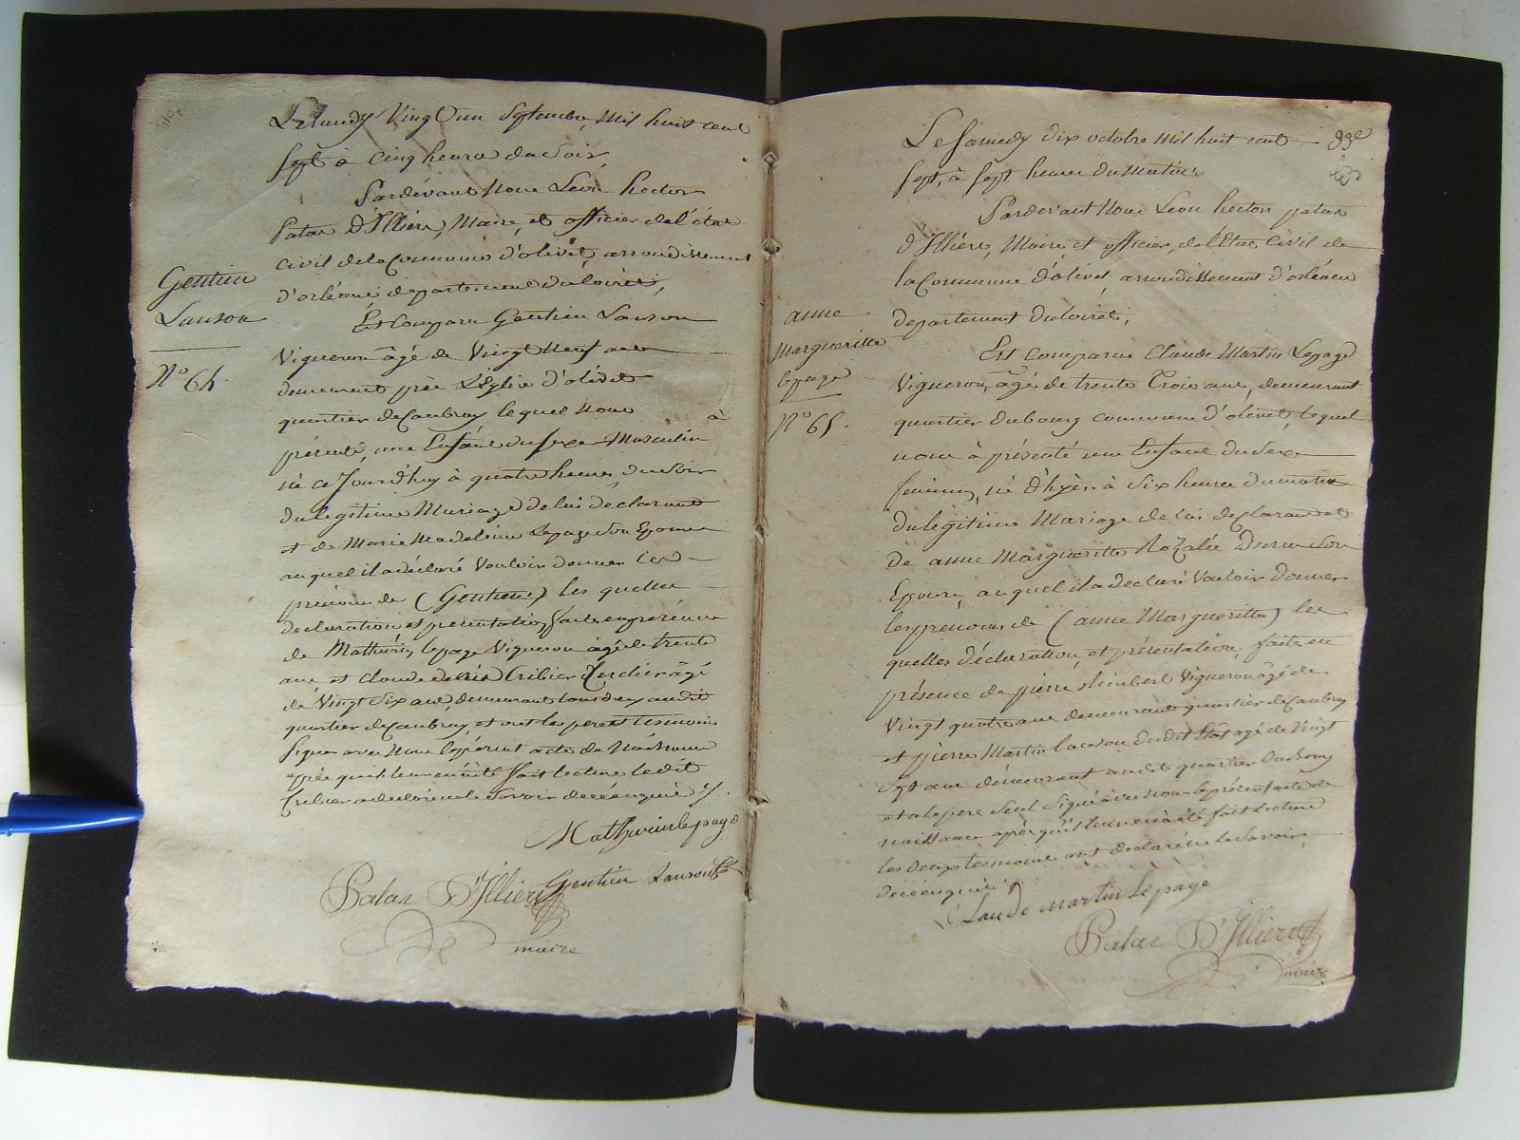 Le Lundy Vingt un Septembre Mil huit cent
Sept à Cinq heures du Soir
Pardevant Nous Léon hector
Patas D'Illiers, Maire, et officier de l'état
Civil de la Commune d'olivet, arrondissement
d'orléans, departement du loiret,
Est Comparu Gentien Lanson
Vigneron âgé de Vingt Neuf ans
demeurant près L'Eglise d'olivet
quartier de Caubray lequel Nous à
présenté, une Enfant du Sexe Masculin
né ce Jourd'huy à quatre heures, du Soir
du legitime Mariage de lui declarant
et de Marie Madeleine Lepage Son Epouse
auquel il a déclaré Vouloir donner les
prénoms de (Gentien) les quelles
declaration et presentation faite en présence
de Mathurin lepage Vigneron âgé de trente
ans et Claude Cribier âgé
de Vingt Six ans demeurant tous deux audit
quartier de Caubray, et ont les pere et temoin
Signé avec Nous le présent acte de Naissance
après quil leur en à été fait lecture ledit
Cribier a déclaré ne le Savoir de ce enquis ./.
Mathurin lepage
Patas D'Illiers Gentien Lanson
maire
Gentien
Lanson
N° 64.
Le Samedy dix octobre Mil huit cent 33e
Sept, à Sept heures du Matin
Pardevant Nous Leon hector patas
d'Illiers, Maire, et officier, de l'Etat Civil de
la Commune d'olivet, arrondissement d'orléans
departement du loiret,
Est Comparu Claude Martin Lepage
Vigneron, âgé de trente Trois ans, demeurant
quartier du bourg commune d'olivet, lequel
nous à présenté une Enfant du Sexe
feminin, né d'hyer à Six heures du matin
du légitime Mariage de lui déclarant et
De anne Margueritte Rozalie Son
Epouse, auquel il a declaré Vouloir donner
les prenoms de (anne Margueritte) les
quelles déclaration, et présentation, faite en
présence de pierre Vigneron âgé de
Vingt quatre ans demeurant quartier de Caubray
et pierre Martin dudit Etat agé de Vingt
Sept ans demeurant audit quartier du bourg
et a le pere Seul Signé avec nous le présent acte de
naissance après qu'il leur en à été fait lecture
les deux temoins ont déclaré ne le Savoir
de ce enquis
Claude Martin Lepage
Patas D'Illiers
maire
anne
Margueritte
lepage
N° 65.